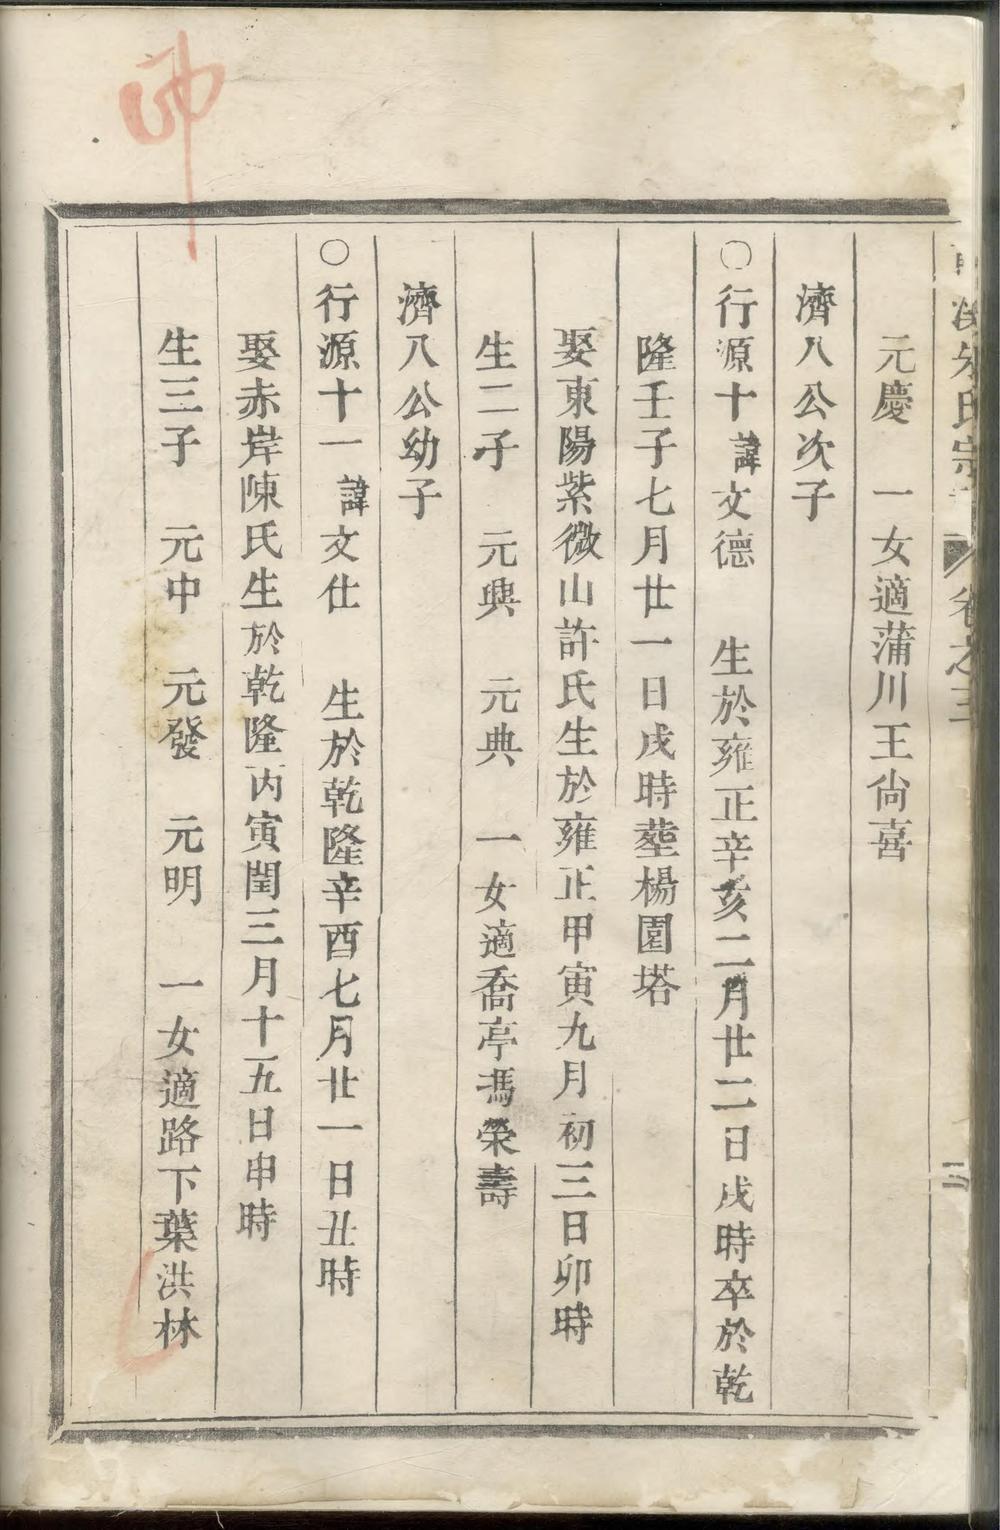 朱氏宗
卷之三
三
元慶　一女適蒲川王尙喜
濟八公次子
〇行源十諱文德　生於雍正辛亥二月廿二日戌時卒於乾
隆壬子七月廿一日戌時塟楊園塔
娶東陽紫微山許氏生於雍正甲寅九月初三日卯時
生二子　元興　元典　一女適喬亭馮榮壽
濟八公幼子
〇行源十一諱文仕　生於乾隆辛酉七月廿一日丑時
娶赤岸陳氏生於乾隆丙寅閏三月十五日申時
生三子　元中　元發　元明　一女適路下葉洪林